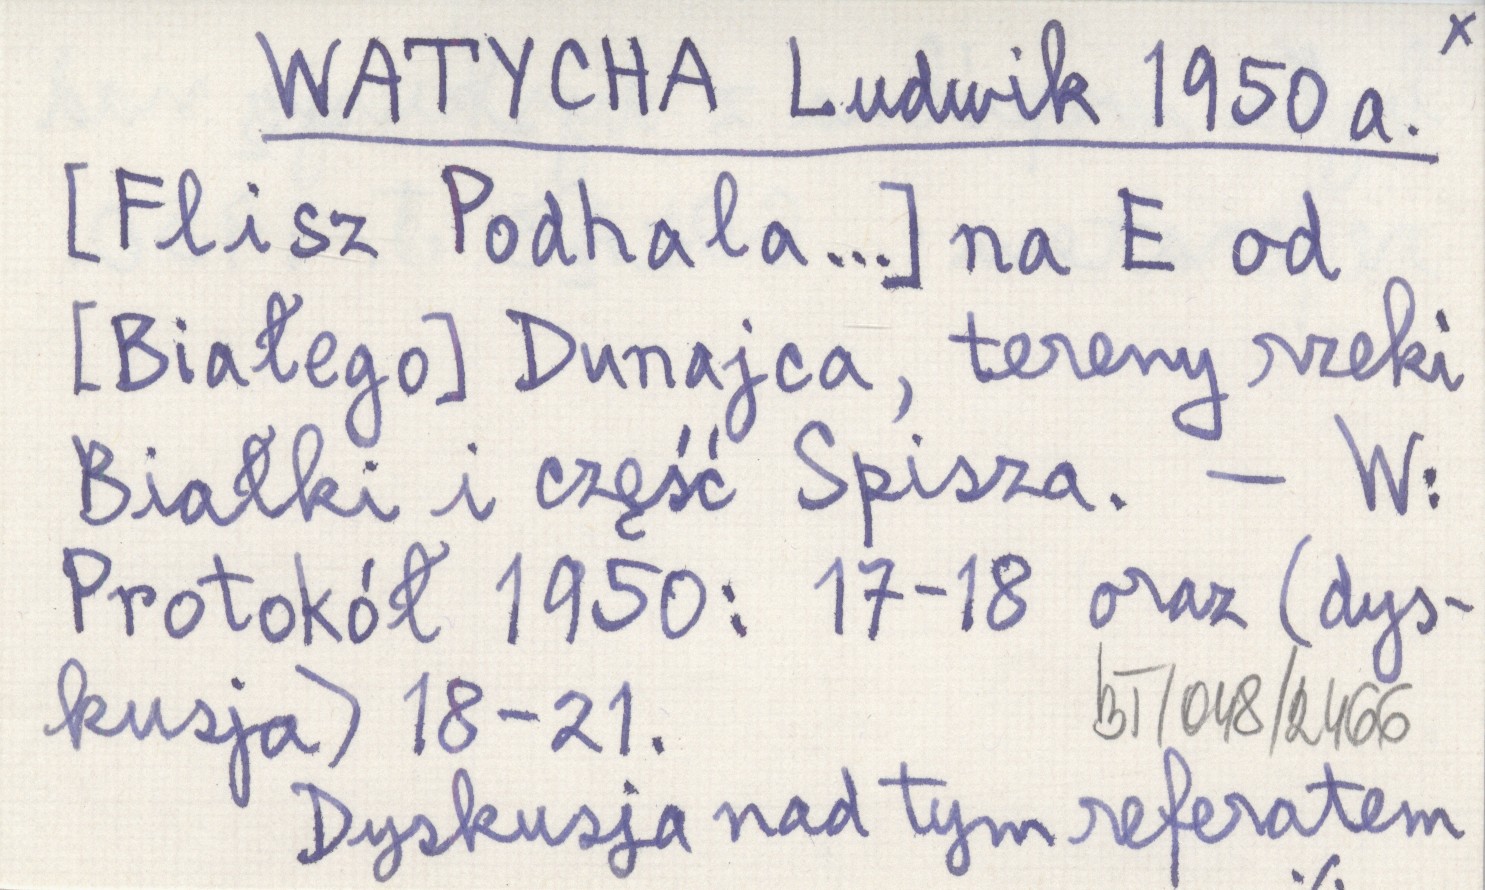 x
WATYCHA Ludwik 1950 a.
[Flisz Podhala...] na E od
[Białego] Dunajca, tereny rzeki
Białki i część Spisza. — W:
Protokół 1950: 17-18 oraz (dys-
kusja) 18-21.
BT/048/2466
Dyskusja nad tym referatem
./.